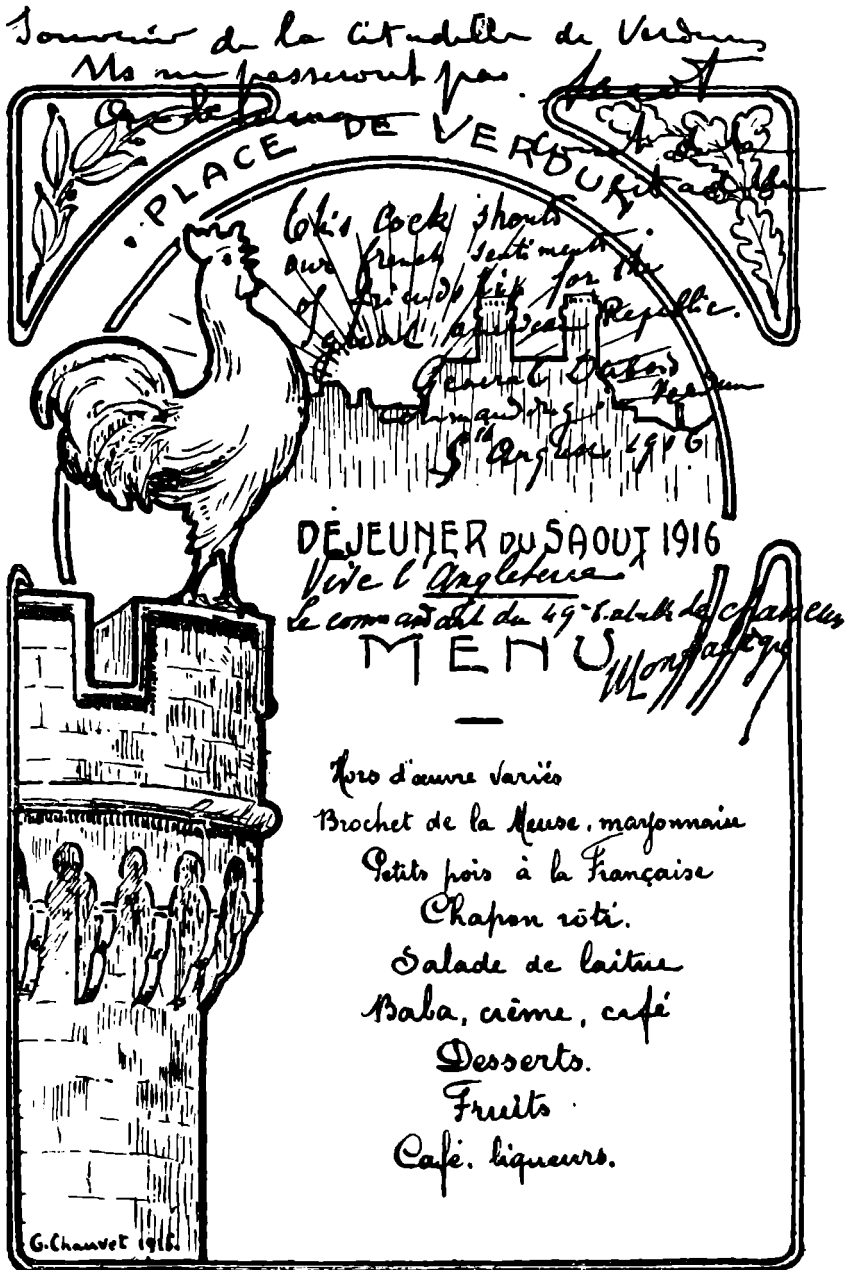 Souvenir de la Citadelle de Verdun
Ils ne passeront pas.
PLACE DE VERDUN
This cock shouts
our french sentiments
of friendship for the
great american Republic.
General Dubois
Commanding Verdun
5th August 1916
DÉJEUNER DU 5 AOUT 1916
Vive l'Angleterre
Le commandant du 49e bat de chasseurs
MENU
Hors d'œuvre variés
Brochet de la Meuse, mayonnaise
Petits pois à la Française
Chapon rôti.
Salade de laitue
Baba, crème, café
Desserts.
Fruits
Café, liqueurs.
G. Chauvet 1916.